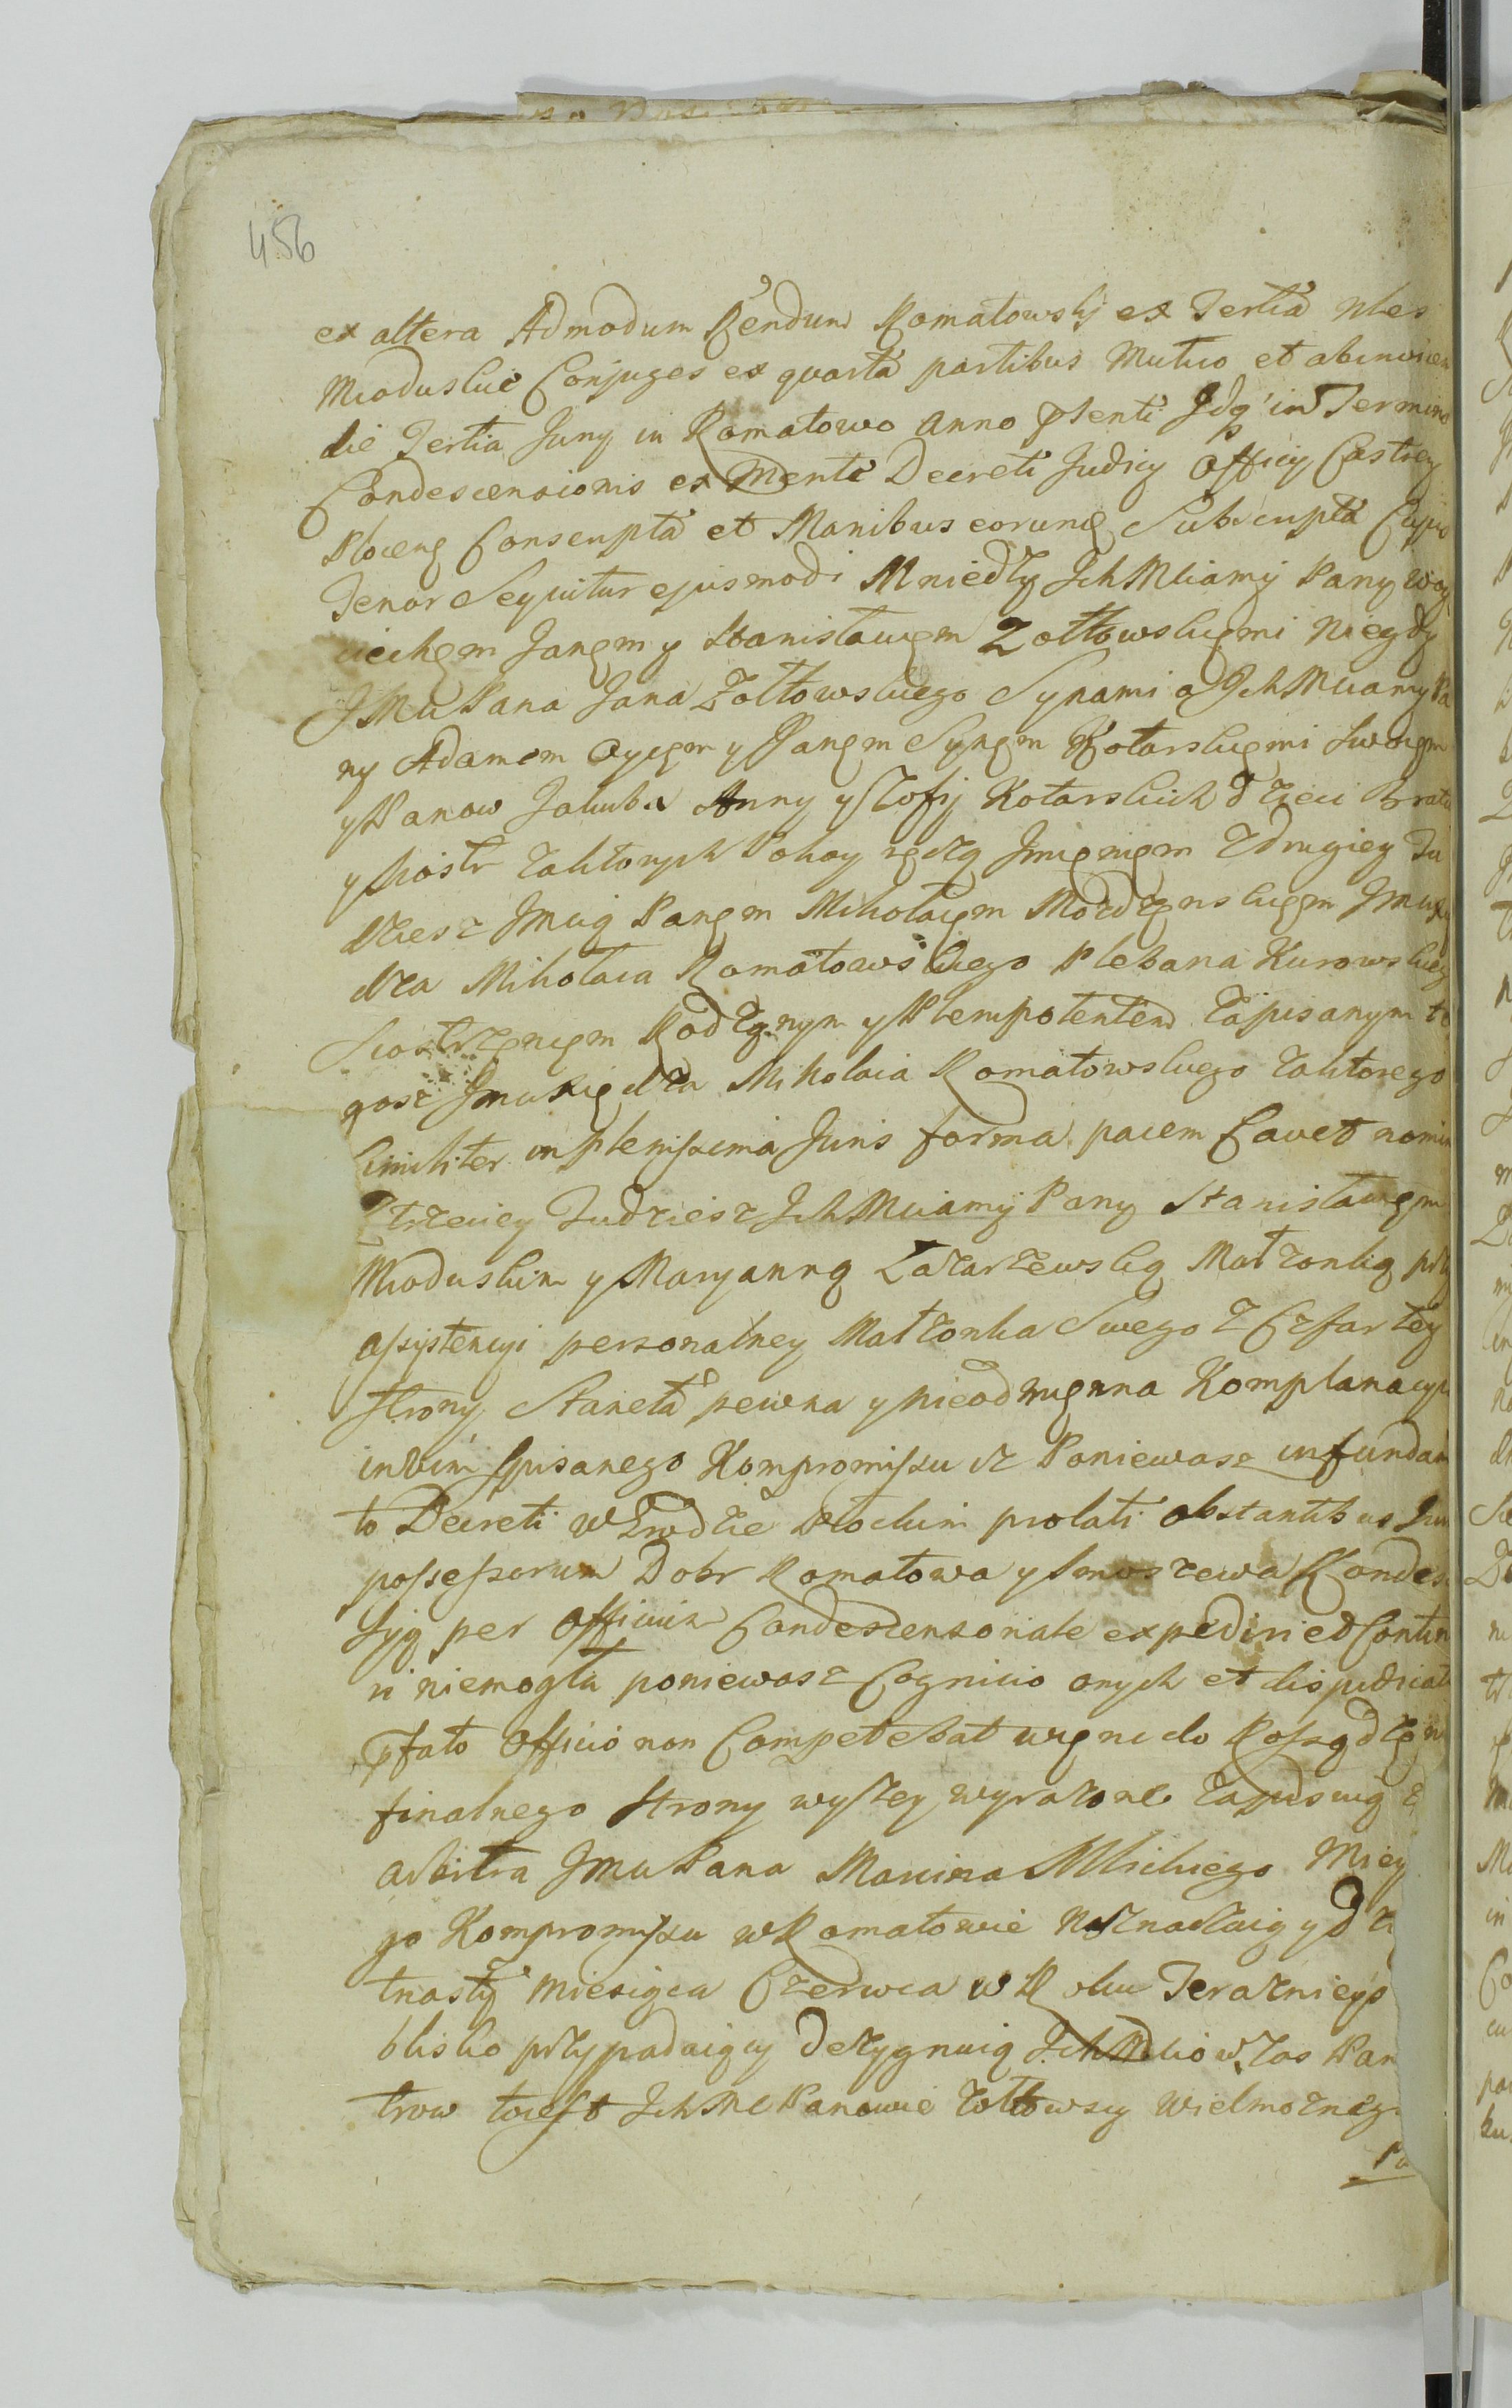 456
ex altera Admodum Rendum Romatowskj ex Tertia Nles
Mioduskie Conjuges ex quarta partibus Mutuo et abinvicem
die Tertia Juny in Romatowo Anno psenti Idq in Termino
Condescensionis ex Mente Decreti Judicy Officy Castren
Plocens Conscripta et Manibus eorum Subscripta Cujus
Tenor Sequitur ejusmodi Mniedzy IchMciamy Pany Woy
ciechem Janem y Stanisławem Zołtowskiemi niegdy
JMci Pana Jana Zołtowskiego Synami a IchMciamy Pa
ny Adamem Oycem y Janem Synem Kotarskiemi Swoiem
y Panow Jakuba Anny y Zofij Kotarskich dzieci Brata
y Siostr zaktorych Pokoy ręczą Jmieniem z drugiey Tu
dziesz Jmcią Panem Mikołaiem Mozdzenskiem Jmci Xię
dza Mikołaia Romatowskiego Plebana Kurowskieg
Siostrzencem Rodzonym y Plenipotentem zapisanym te
gosz Jmci Xiędza Mikołaia Romatowskiego zaktorego
Similiter in plenissima Juris forma pacem Cavet nomin
z trzeciey Tudziesz IchMciamy Pany Stanisławem
Mioduskim y Maryanną Lazarzewską Małzonką przy
assystencyi personalney Małzonka Swego z Czfartey
strony Staneła pewna y nieodmienna Komplanacya
invim spisanego Kompromissu isz Poniewasz infundam
to Decreti w Grodzie Płockim prolati obstantibus Juri
possessorum Dobr Romatowa y Smoszewa Kondes
syą per Officium Condescensoriale expediri et Contin
ri niemogła poniewasz Cognicio onych et disjudicat
pfato Officio non Competebat więc do Rossądzen
finalnego strony wyszey wyrazone zapisuią
arbitra Jmci Pana Marcina Mlickiego Miey
go Kompromissu w Romatowie Naznaczaią y dz
tnasty Miesiąca Czerwca w Roku Terazniey
blisko przypadaiący dezygnuią
trow toiest Ich Mc Panowie Zołtowscy Wielmoznego
Pa